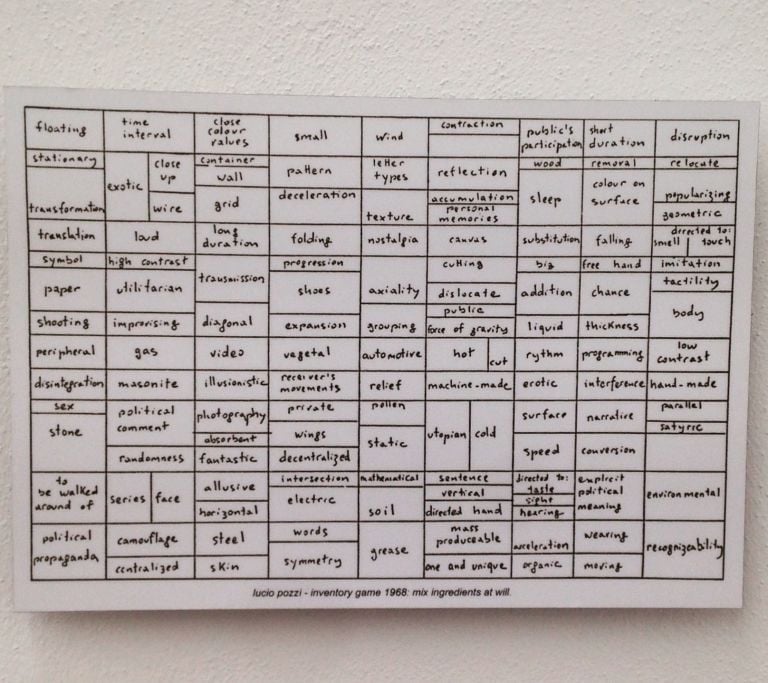 floating time interval close colour values small wind contraction public's participation short duration disruption
stationary exotic close up container pattern letter types reflection wood removal relocate
wall
transformation wire grid deceleration texture accumulation sleep colour on surface popularizing
personal memories geometric
translation loud long duration folding nostalgia canvas substitution falling directed to: smell touch
symbol high contrast transmission progression axiality cutting big free hand imitation
paper utilitarian shoes dislocate addition chance tactility
public body
shooting improvising diagonal expansion grouping force of gravity liquid thickness
peripheral gas video vegetal automotive hot cut rythm programming low contrast
disintegration masonite illusionistic receiver's movements relief machine-made erotic interference hand-made
sex political comment photography private pollen utopian cold surface narrative parallel
stone absorbent wings static satyric
randomness fantastic decentralized speed conversion
to be walked around of series face allusive intersection mathematical sentence directed to: taste explicit political meaning environmental
electric vertical sight
horizontal soil directed hand hearing
political propaganda camouflage steel words grease mass produceable acceleration wearing recognizeability
centralized skin symmetry one and unique organic moving
lucio pozzi - inventory game 1968: mix ingredients at will.